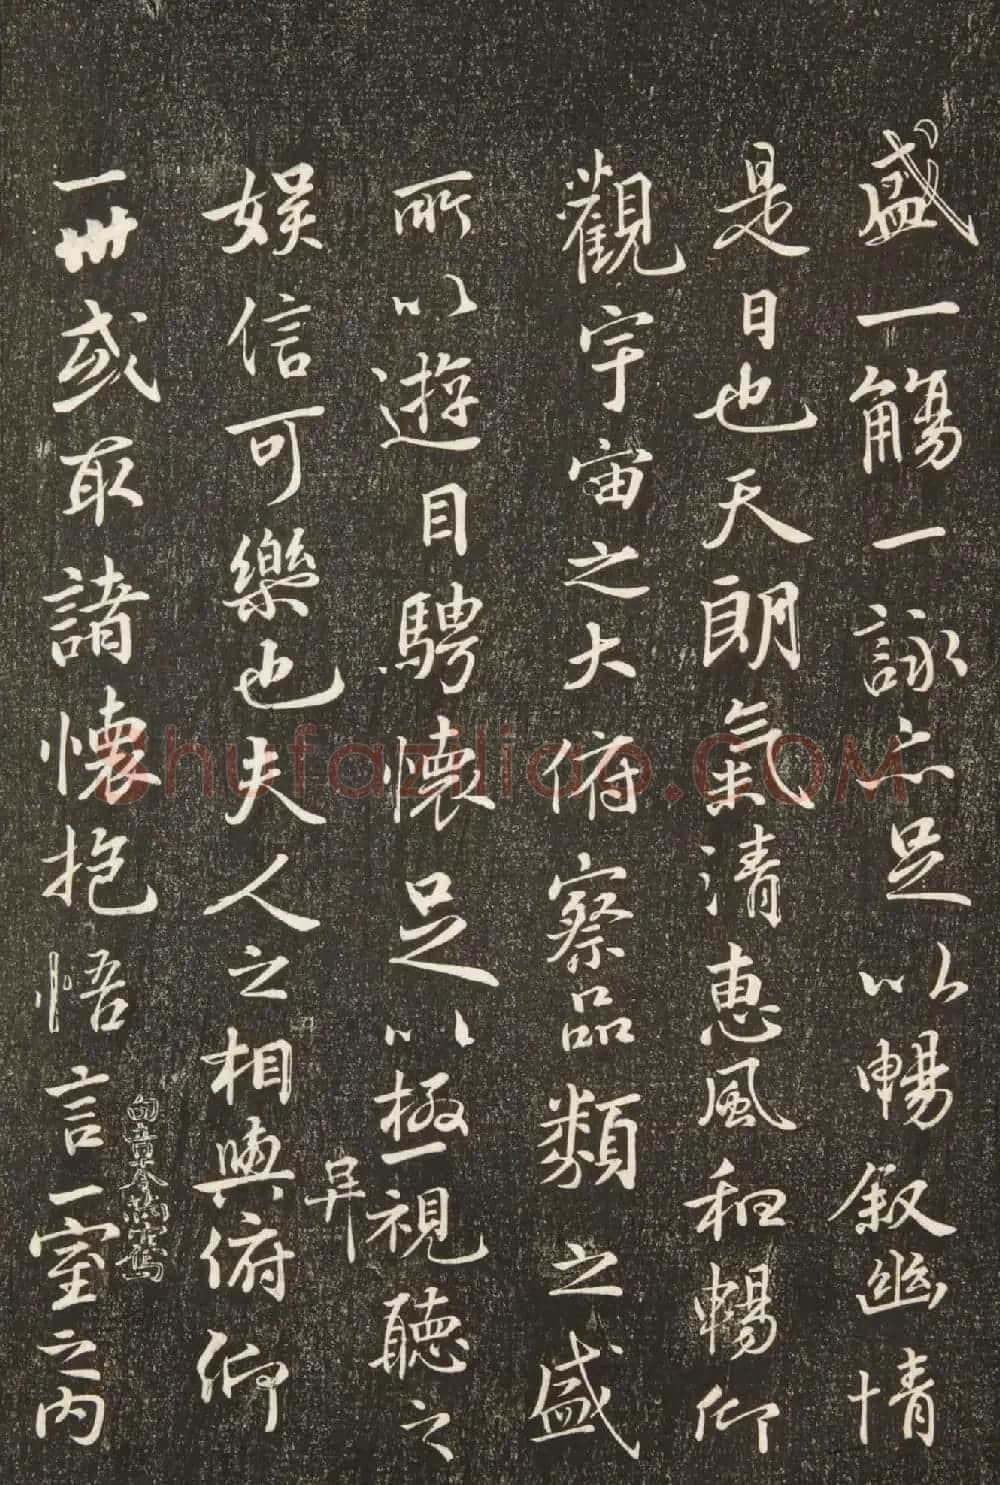 盛一觴一詠亦足以暢叙幽情
是日也天朗氣清惠風和暢仰
觀宇宙之大俯察品類之盛
所以遊目騁懷足以極視聽之
娱信可樂也夫人之相與俯仰
一世或取諸懷抱悟言一室之内
shufaziliao.COM